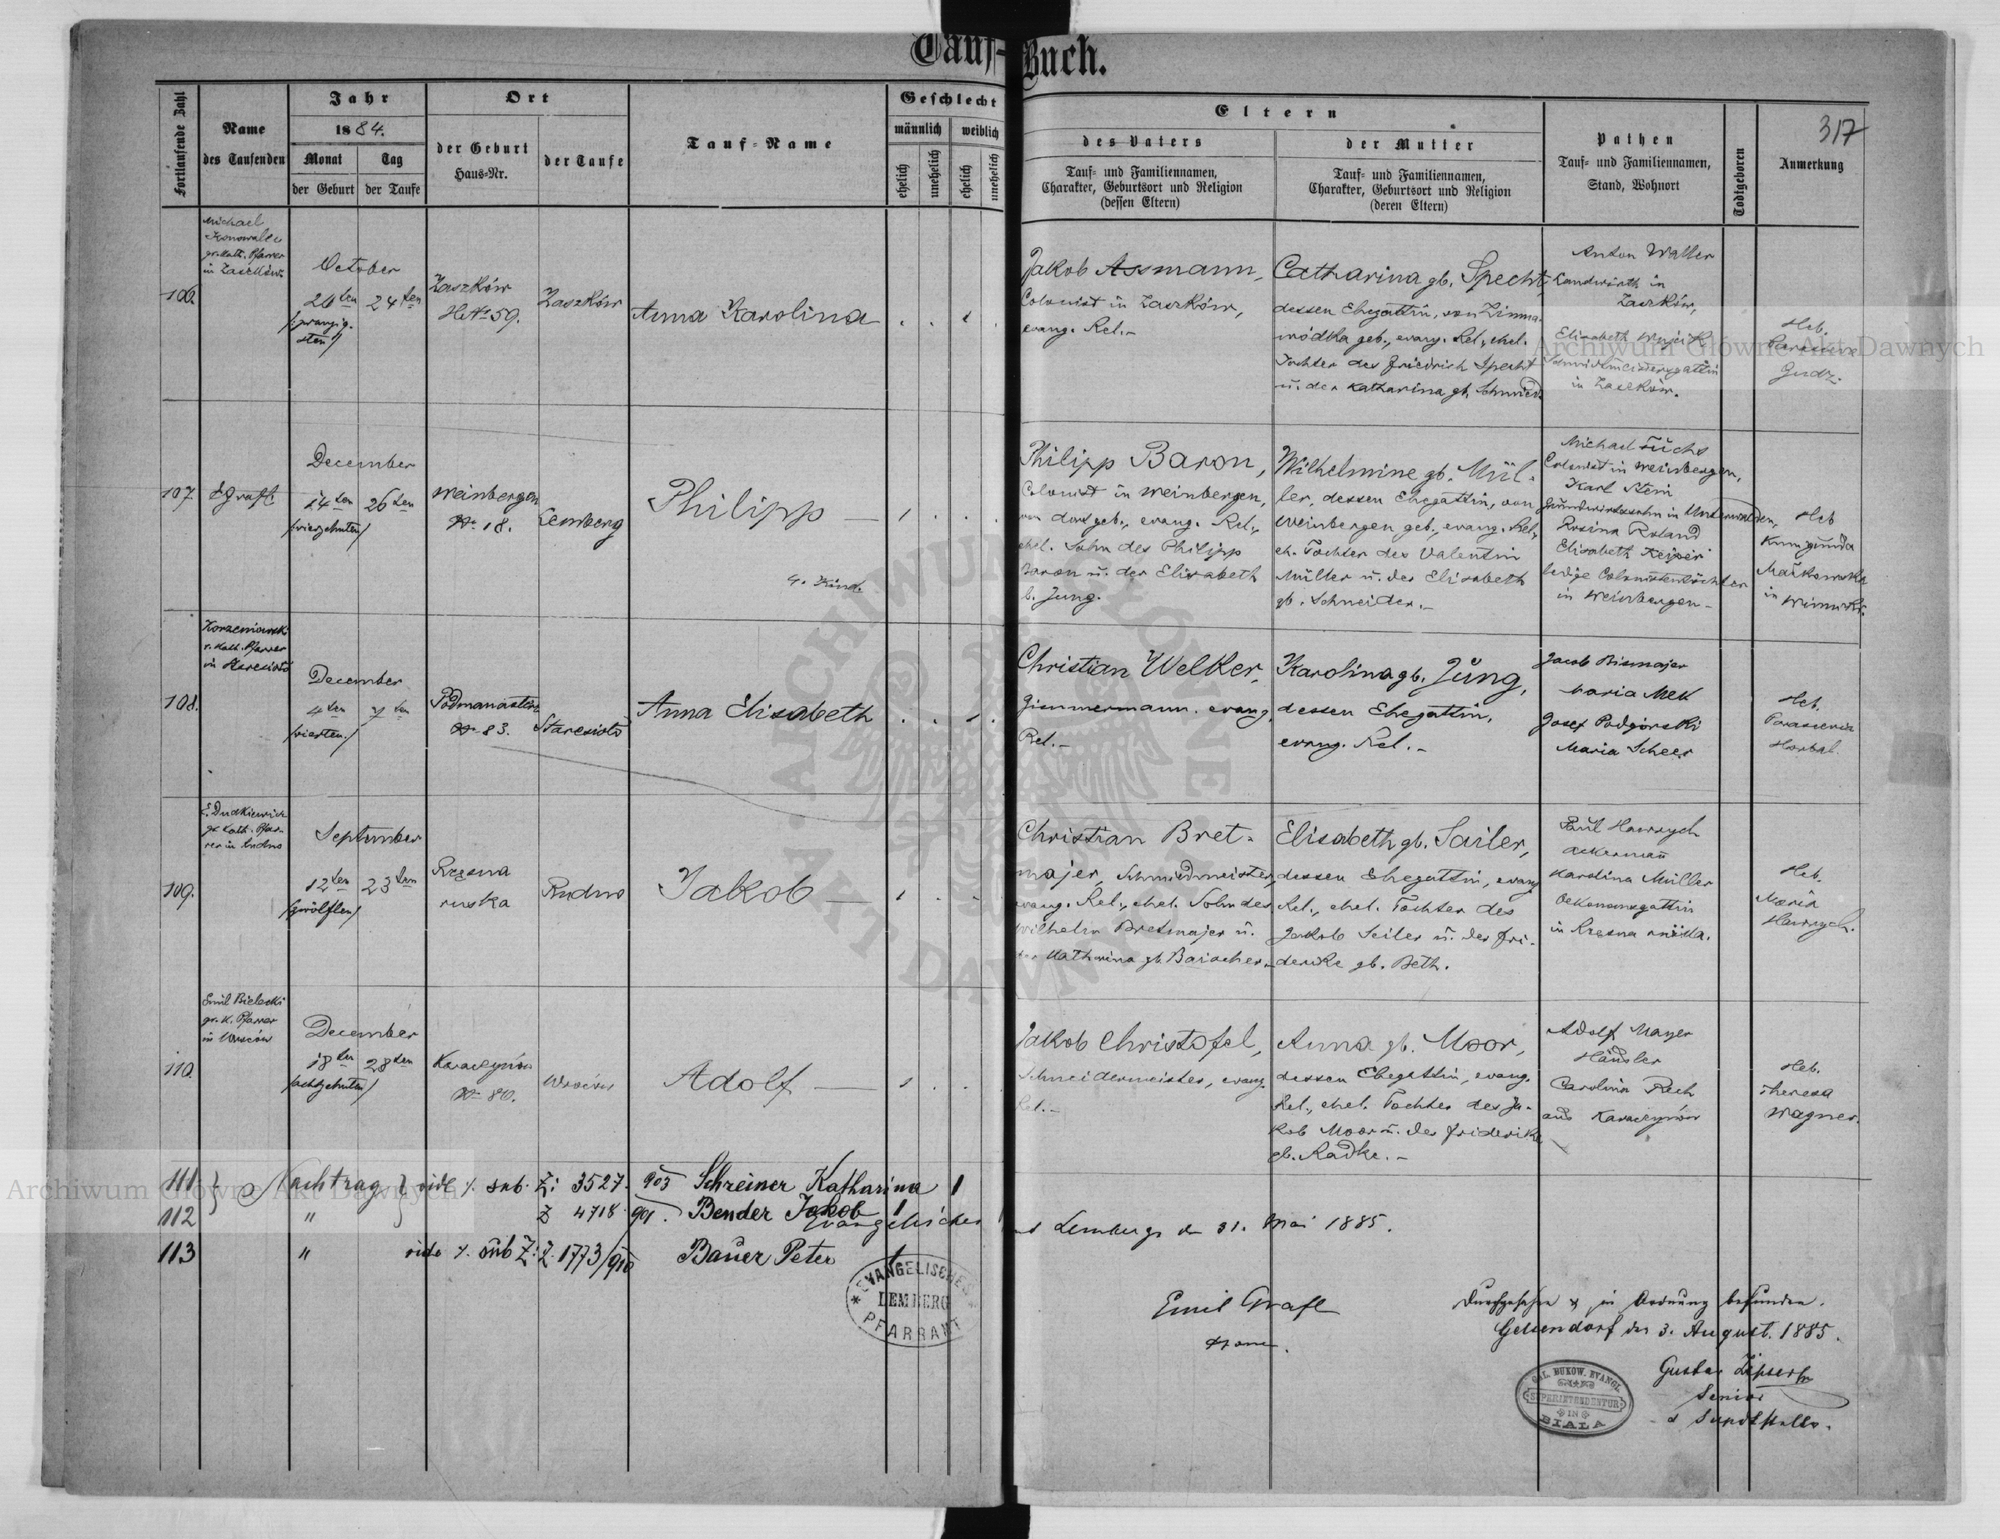 Tauf-Buch.
Fortlaufende Zahl
Name
des Taufenden
Jahr
1884.
Monat
Tag
der Geburt
der Taufe
Ort
der Geburt
Haus-Nr.
der Taufe
Tauf-Name
Geschlecht
männlich
weiblich
ehelich
unehelich
ehelich
unehelich
Eltern
des Vaters
Tauf- und Familiennamen,
Charakter, Geburtsort und Religion
(dessen Eltern)
der Mutter
Tauf- und Familiennamen,
Charakter, Geburtsort und Religion
(deren Eltern)
Pathen
Tauf- und Familiennamen,
Stand, Wohnort
Todtgeboren
317
Anmerkung
106.
Michael
gr. kath. Pfarrer
in Zaszków
October
20ten 24ten
/:zwanzig-
sten/
Zaszków
HNo 59.
Zaszków
Anna Karolina
Jakob Assmann,
Colonist in Zaszków,
evang. Rel.-
Catharina gb. Specht,
dessen Ehegattin, von Zimna-
wódka geb., evang. Rel., ehel.
Tochter des Friedrich Specht
u. der Katharina gb. Schmied
Anton Walter
Landwirth in
Zaszków,
Elisabeth
in Zaszków.
Heb.
107.
E Grafl
December
14ten 26ten
/vierzehnten/
Weinbergen
No 18.
Lemberg
Philipp
4. Kind.
Philipp Baron,
Colonist in Weinbergen,
von dort geb., evang. Rel.,
ehel. Sohn des Philipp
Baron u. der Elisabeth
b. Jung.
Wilhelmine gb. Mül-
ler, dessen Ehegattin, von
Weinbergen geb., evang. Rel.,
eh. Tochter des Valentin
Müller u. der Elisabeth
gb. Schneider.-
Michael Fuchs
Colonist in Weinbergen,
Karl Stein
in Unterwalden,
Rosina Roland
Elisabeth Keiper
ledige Colonistentöchter
in Weinbergen-
Heb
Kunegunda
Markowska
in
108.
Korzeniowski
r. kath. Pfarrer
in Staresioło
December
4ten 7ten
/vierten./
Podmanasterz
No 83.
Staresioło
Anna Elisabeth
Christian Welker,
Zimmermann, evang.
Rel.-
Karolina gb. Jung,
dessen Ehegattin,
evang. Rel.-
Jacob Bismajer
Maria Mek
Josef Podgórski
Maria Scheer
Heb.
Parascevia
Horbal.
109.
E. Dudkiewicz
gr kath. Pfar-
rer in Rudno
September
12ten 23ten
/zwölften/
Rzęsna
ruska
Rudno
Jakob
Christian Bret-
majer, Schmiedmeister,
evang. Rel., ehel. Sohn des
Wilhelm Bretmajer u.
der Katharina gb.
Elisabeth gb. Sailer,
dessen Ehegattin, evang
Rel., ehel. Tochter des
Jakob Seiler u. der Fri-
derike gb. Beth.
Paul Hawrych
Ackermann
Karolina Müller
Oekonomsgattin
in Rzęsna ruska.
Heb.
Maria
Hawrych.
110.
Emil Bielecki
gr. k. Pfarrer
in Wroców
December
18ten 28ten
/achtzehnten/
Karaczynów
No 80.
Wroców
Adolf
Jakob Christofel,
Schneidermeister, evang.
Rel.-
Anna gb. Moor,
dessen Ehegattin, evang.
Rel., ehel. Tochter des Ja-
kob Moor u. der Friderike
gb. Radke.-
Adolf Mayer
Häusler
Carolina Rech
aus Karaczynów
Heb.
Theresa
Wagner.
111. Nachtrag vide /. sub. Z: 3527. 903 Schreiner Katharina 1
112 " Z 4718 901. Bender Jakob 1
Evangelisches
Lemberg den 31. Mai 1885.
113 " vide /. sub Z: Z. 1773/910 Bauer Peter 1
EVANGELISCHES
LEMBERG
PFARRAMT
Emil Grafl
Durchgesehen & in Ordnung befunden.
Gelsendorf den 3. August. 1885.
Gustav
Senior
GAL. BUKOW. EVANGL.
SUPERINTENDENTUR
IN
BIALA
Archiwum Główne Akt Dawnych
Archiwum Główne Akt Dawnych
ARCHIWUM GŁÓWNE
AKT DAWNYCH